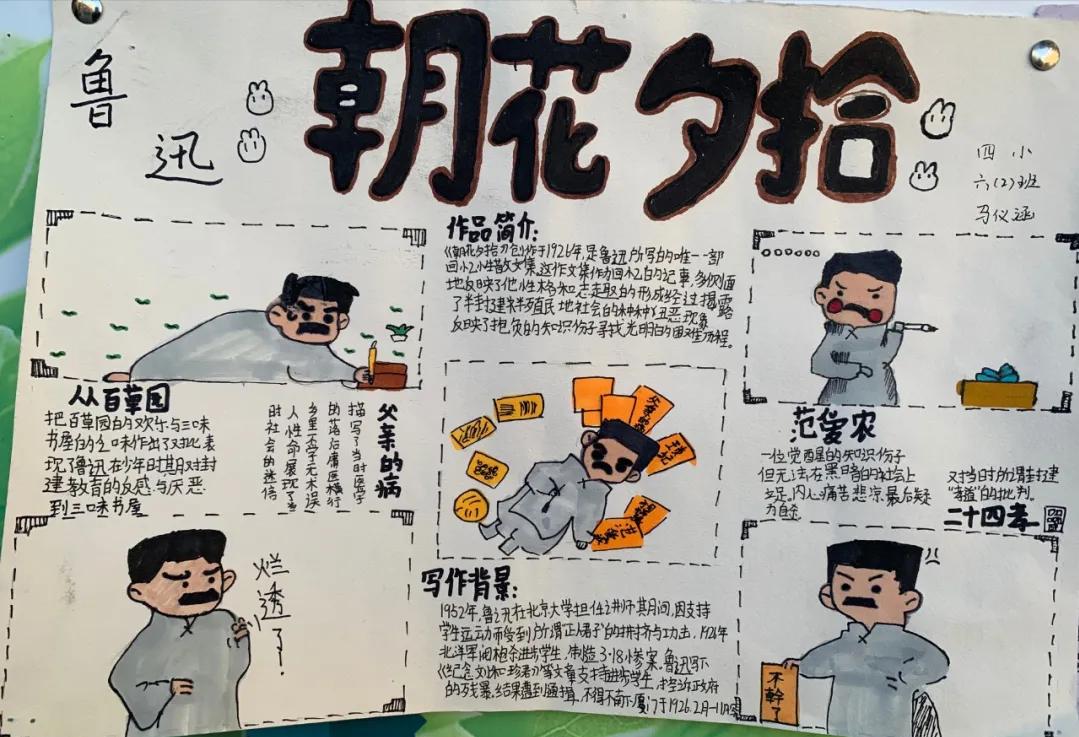 鲁迅
朝花夕拾
四小
六(2)班
马仪涵
作品简介:
《朝花夕拾》创作于1926年,是鲁迅所写的唯一一部
回忆性散文集,这作文集作为回忆的记事,多侧面
地反映了他性格和志趣的形成经过揭露
了半封建半殖民地社会的种种丑恶现象
反映了抱负的知识份子寻找光明的困难历程。
从百草园
把百草园的欢乐与三味
书屋的乏味作出了对比,表
现了鲁迅在少年时期对封
建教育的反感与厌恶
到三味书屋
父亲的病
描写了当时医学
的落后庸医横行
乡里不学无术误
人性命展现了当
时社会的迷信
范爱农
一位觉醒的知识份子
但无法在黑暗的社会上
立足,内心痛苦悲凉,最后疑
为自尽
对当时的所谓封建
“孝道”的批判。
二十四孝图
父亲的病
琐记
范爱农
烂透了
写作背景:
1952年,鲁迅在北京大学担任讲师其月间,因支持
学生运动而受到所谓“正人君子”的排挤与功击,1926年
北洋军阀枪杀进步学生,制造3·18惨案,鲁迅写下
《纪念刘和珍君》等文章支持进步学生,
的残暴,结果遭到通缉,不得不南下厦门于1926.2月-11月
不幹了